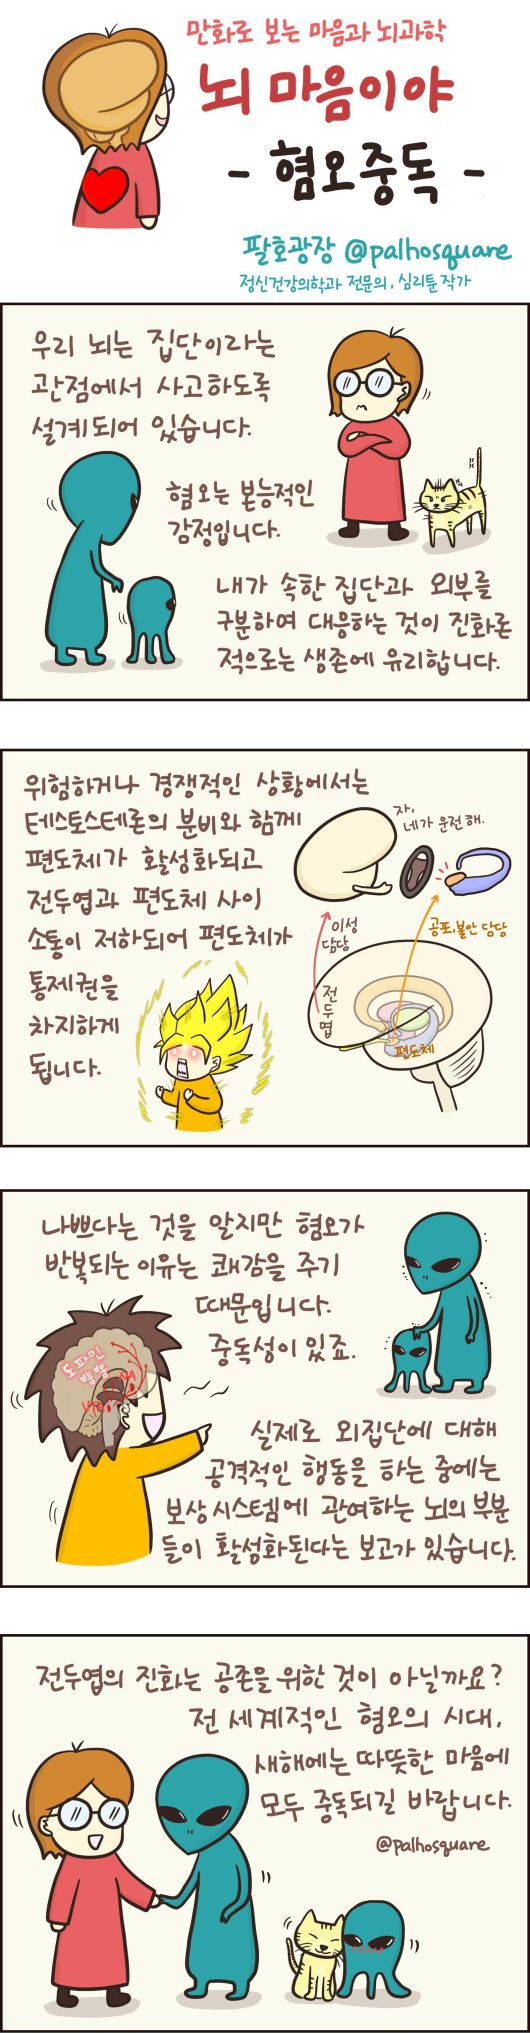 만화로 보는 마음과 뇌과학
뇌 마음이야
- 혐오중독 -
팔호광장 @palhosquare
정신건강의학과 전문의, 심리툰작가
우리 뇌는 집단이라는
관점에서 사고하도록
설계되어 있습니다.
혐오는 본능적인
감정입니다.
내가 속한 집단과 외부를
구분하여 대응하는 것이 진화론
적으로는 생존에 유리합니다.
위험하거나 경쟁적인 상황에서는
테스토스테론의 분비와 함께
편도체가 활성화되고
전두엽과 편도체 사이
소통이 저하되어 편도체가
통제권을
차지하게
됩니다.
자,
네가 운전해.
이성
담당
공포,불안 담당
전두엽
편도체
나쁘다는 것을 알지만 혐오가
반복되는 이유는 쾌감을 주기
때문입니다.
중독성이 있죠.
도파민
뿜뿜
NA
VTA
실제로 외집단에 대해
공격적인 행동을 하는 중에는
보상시스템에 관여하는 뇌의 부분
들이 활성화된다는 보고가 있습니다.
전두엽의 진화는 공존을 위한 것이 아닐까요?
전 세계적인 혐오의 시대,
새해에는 따뜻한 마음에
모두 중독되길 바랍니다.
@palhosquare